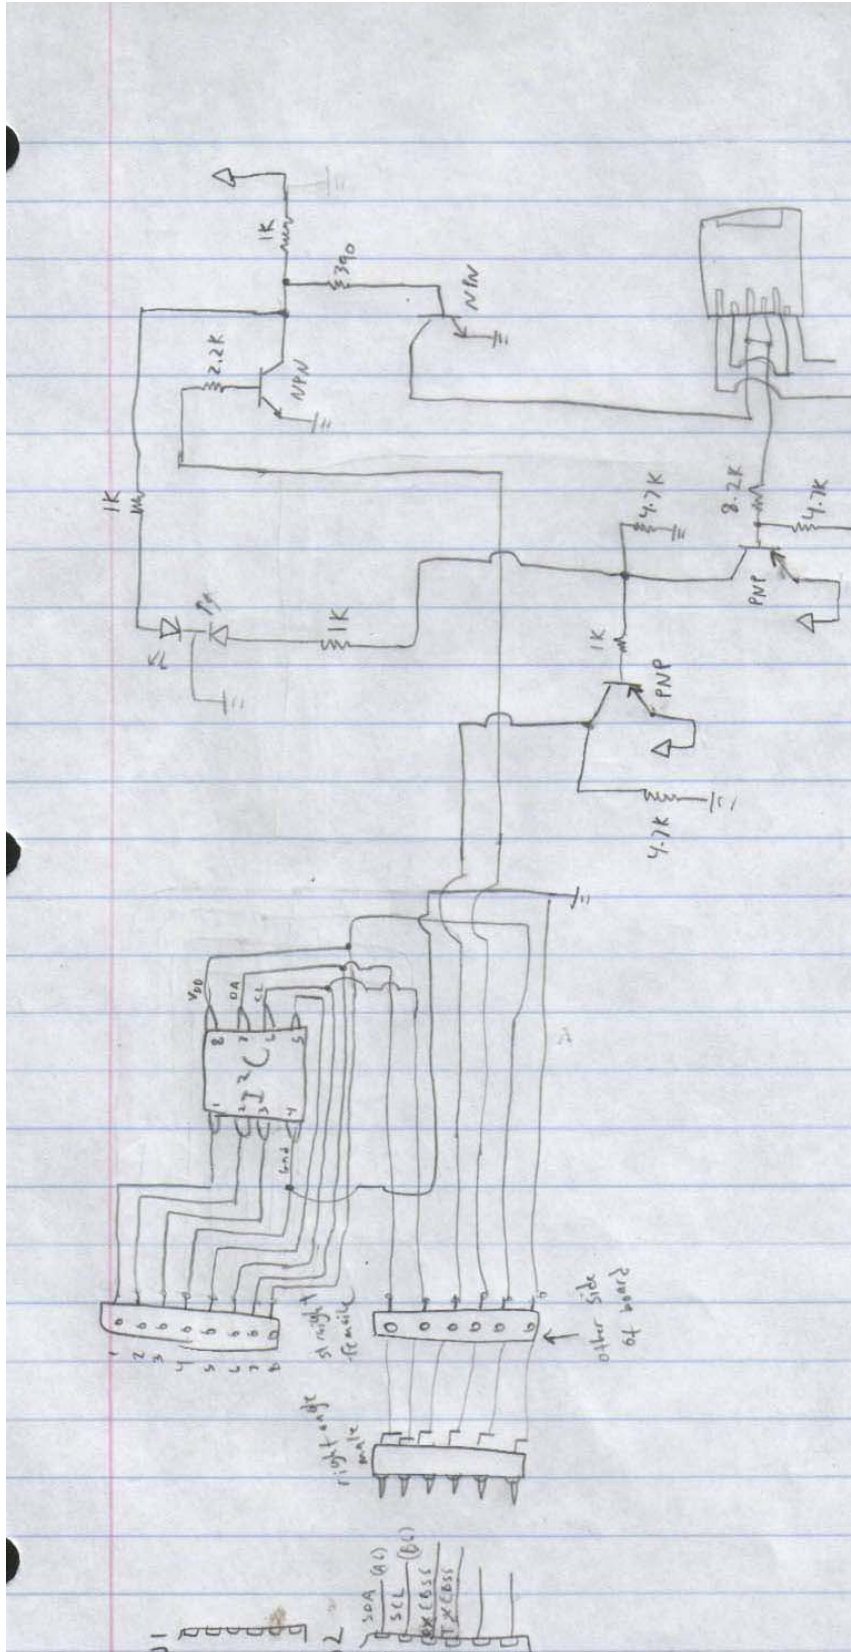 1K
390
NPN
2.2K
NPN
1K
4.7K
8.2K
4.7K
PNP
1K
1K
PNP
4.7K
VDD
DA
CL
8
7
6
5
I2C
1
2
3
4
Gnd
1
2
3
4
5
6
7
8
straight
female
other side
of board
right angle
male
SDA (A6)
SCL (B6)
TX CBS6
2